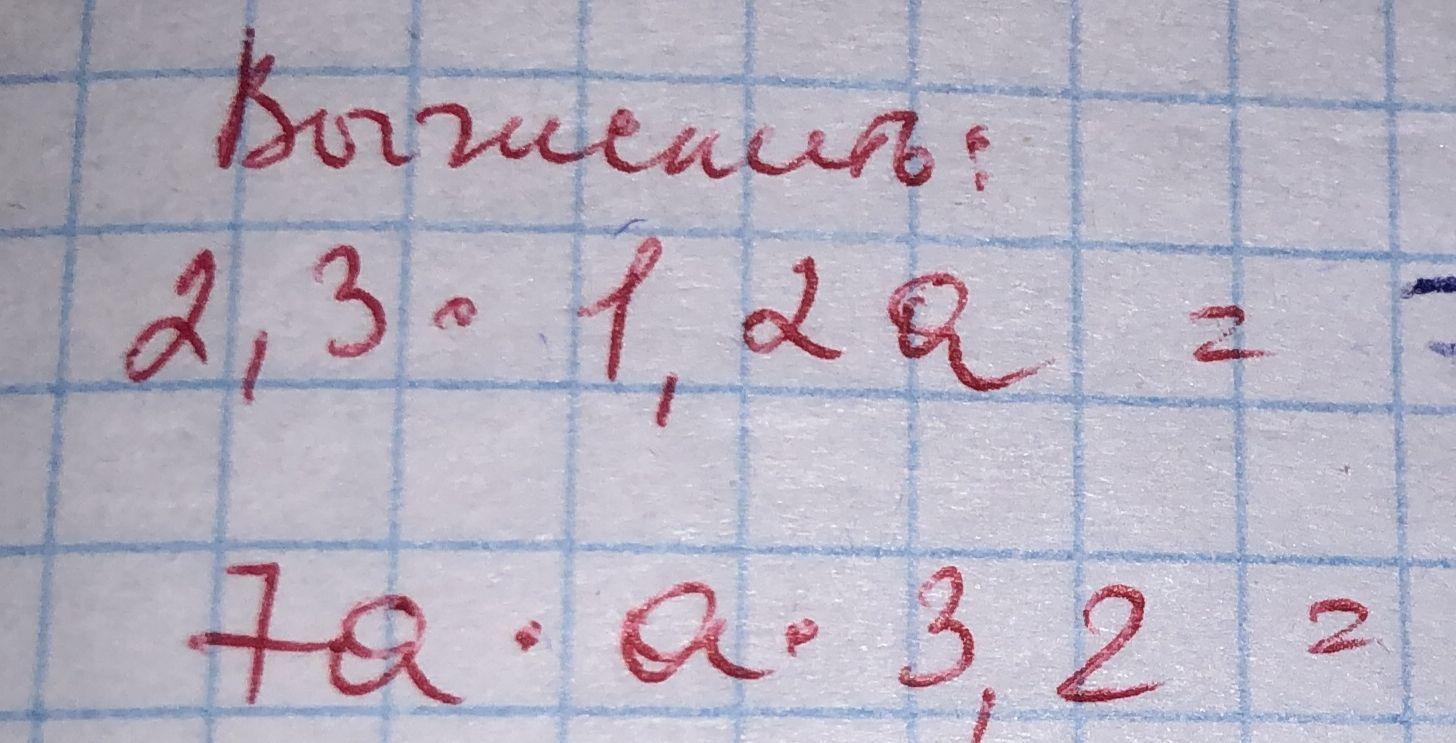 Вычислить:
2,3 · 1,2a =
7a · a · 3,2 =